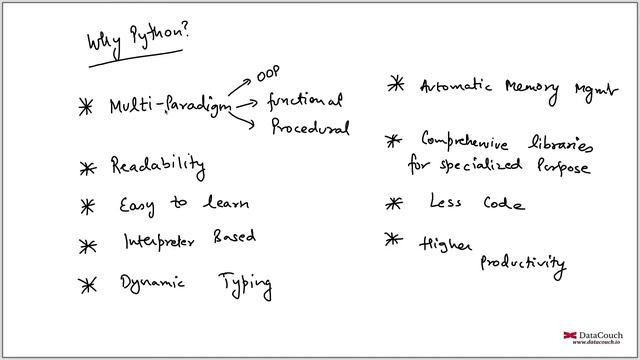 Why Python?
* Multi-Paradigm
OOP
functional
Procedural
* Readability
* Easy to learn
* Interpreter Based
* Dynamic Typing
* Automatic Memory Mgmt
* Comprehensive libraries
for specialized Purpose
* Less Code
* Higher
Productivity
DataCouch
www.datacouch.io